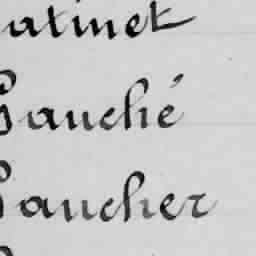 atinet
Gauché
Gaucher